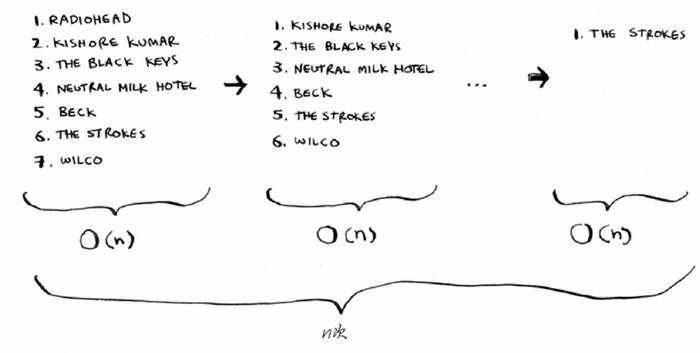 1. RADIOHEAD
2. KISHORE KUMAR
3. THE BLACK KEYS
4. NEUTRAL MILK HOTEL
5. BECK
6. THE STROKES
7. WILCO
O(n)
1. KISHORE KUMAR
2. THE BLACK KEYS
3. NEUTRAL MILK HOTEL
4. BECK
5. THE STROKES
6. WILCO
O(n)
...
1. THE STROKES
O(n)
n次